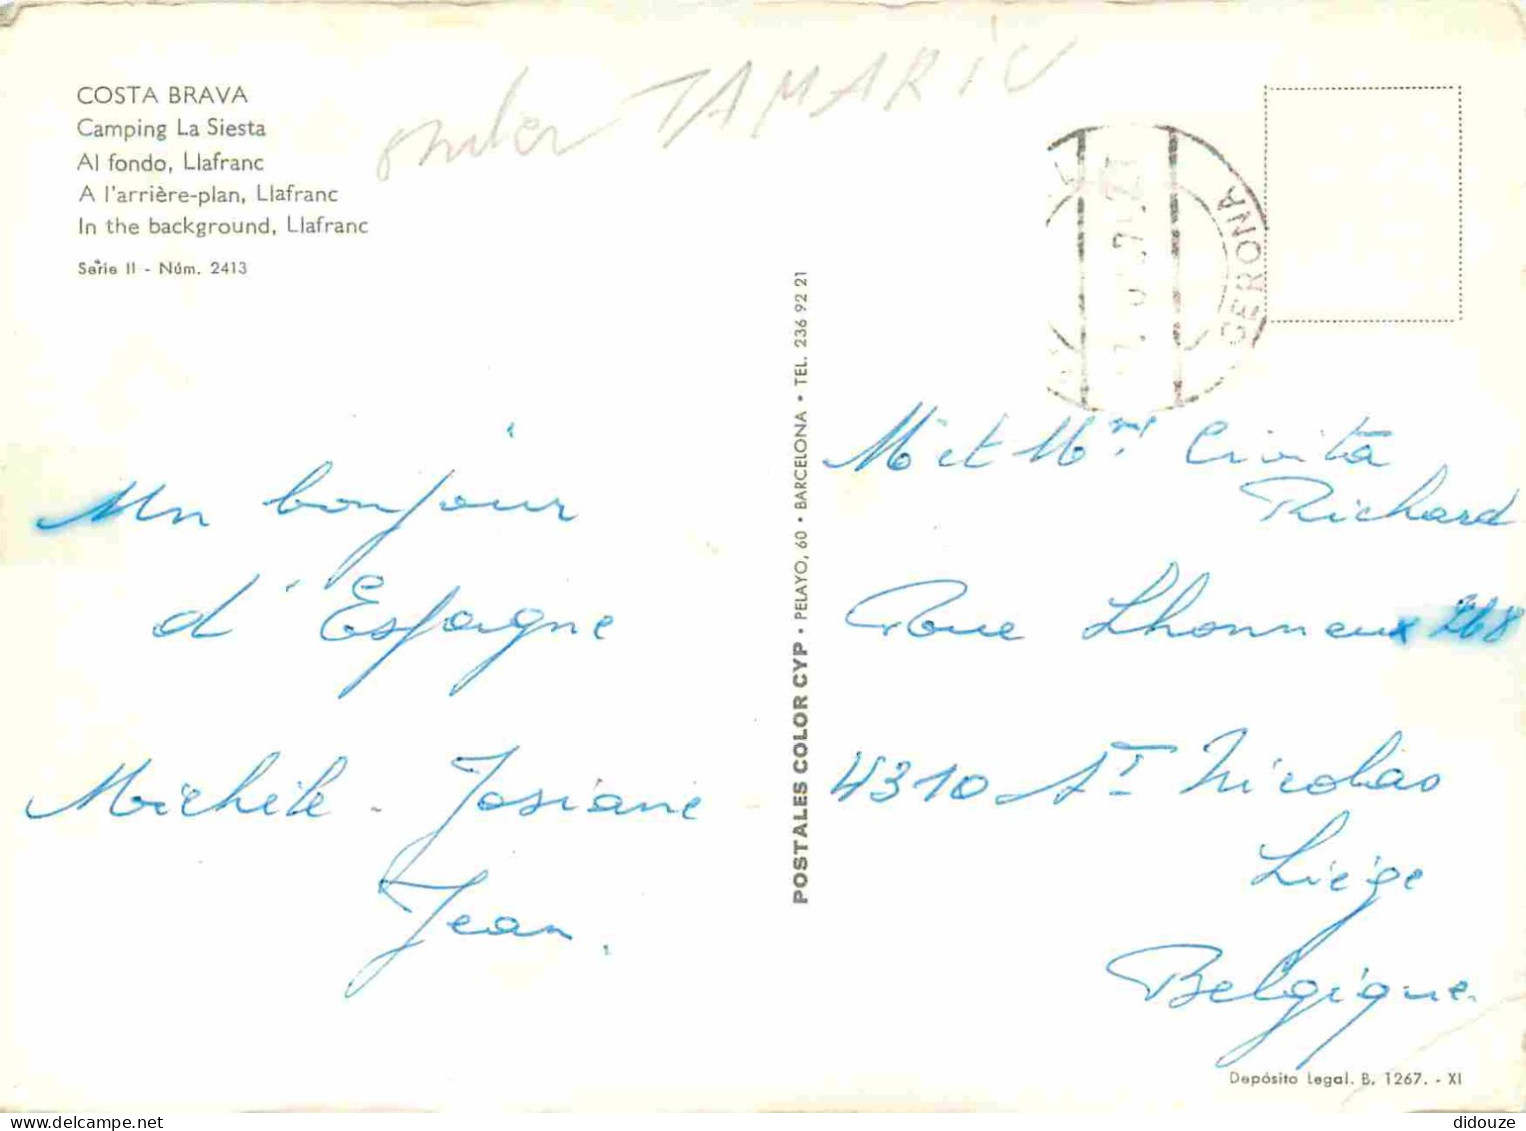 COSTA BRAVA
Camping La Siesta
Al fondo, Llafranc
A l'arrière-plan, Llafranc
In the background, Llafranc
Serie II - Núm. 2413
onder TAMARIU
GERONA
Un bonjour
d'Espagne
Michèle - Josiane
Jean.
POSTALES COLOR CYP • PELAYO, 60 • BARCELONA • TEL. 236 92 21
Mr et Mme Civita
Richard
Rue Lhonneux 268
4310 St Nicolas
Liège
Belgique.
Depósito Legal. B. 1267. - XI
delcampe.net
didouze